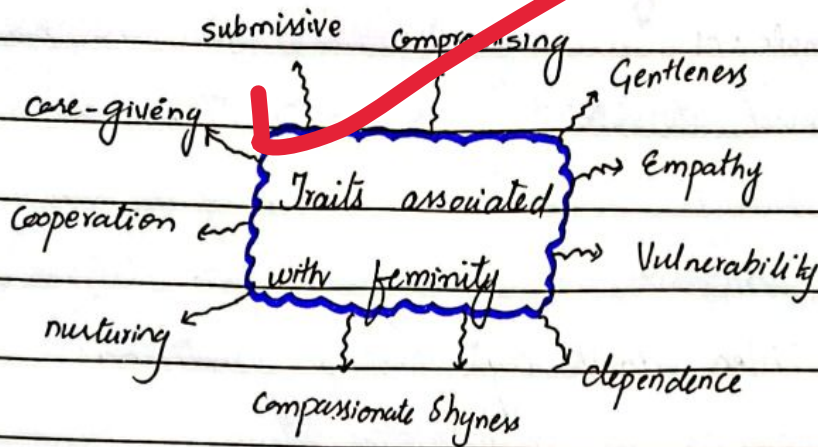 submissive compromising
Gentleness
care-giving
Empathy
Traits associated
Cooperation
Vulnerability
with feminity
nurturing
dependence
Compassionate Shyness